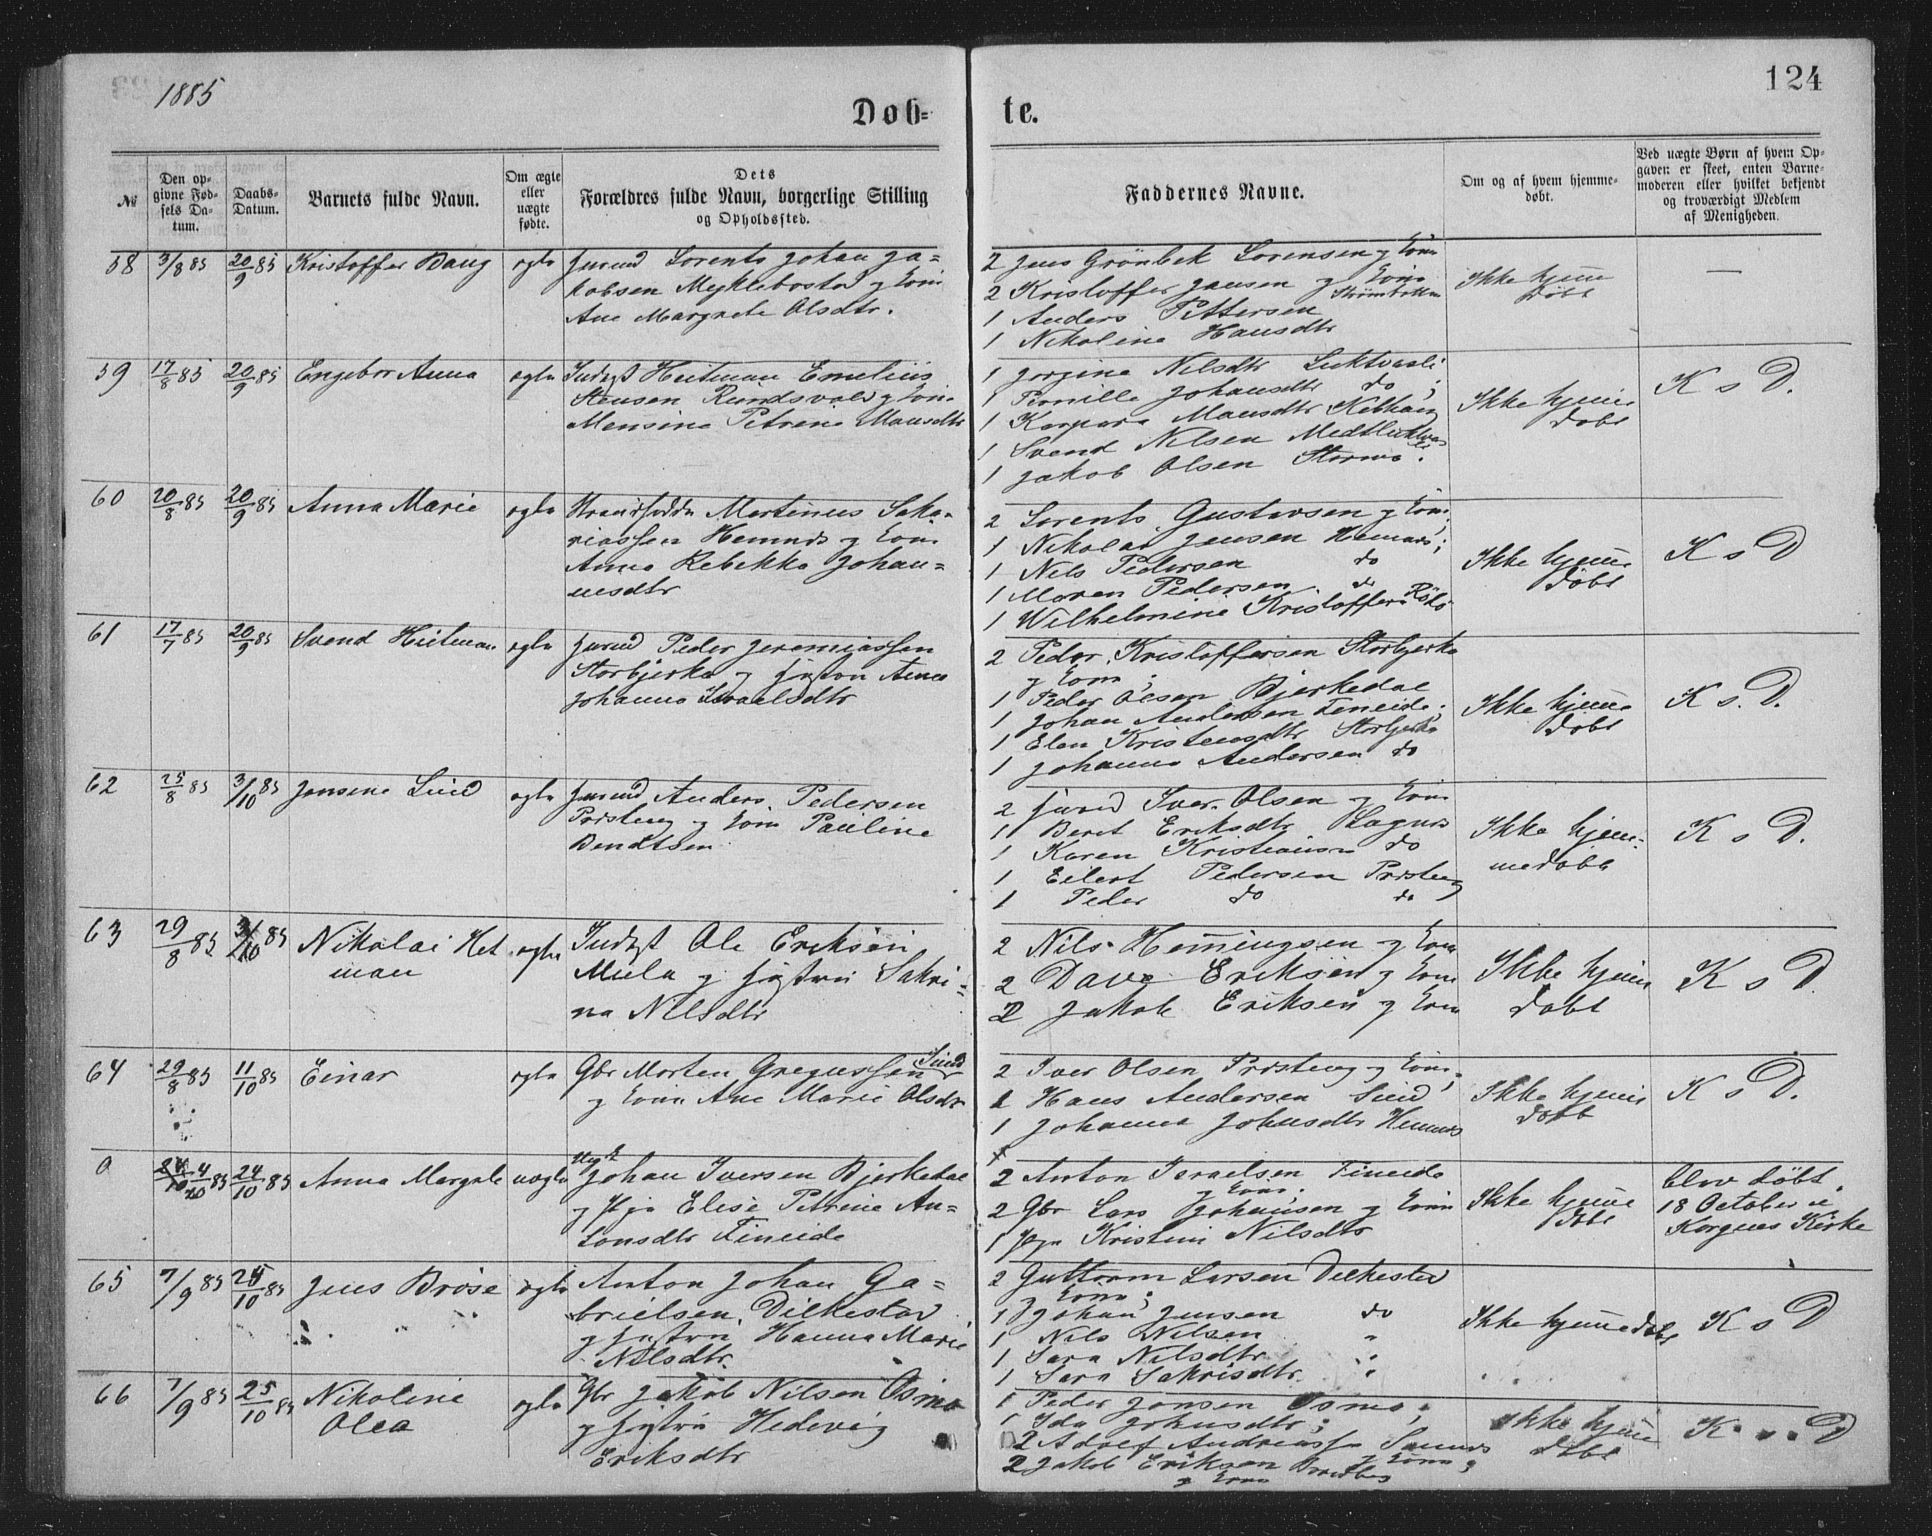 1885
124
Døb-
te.
№
Den op-
givne Fød-
sels Da-
tum.
Daabs-
Datum.
Barnets fulde Navn.
Om ægte
eller
uægte
fødte.
Dets
Forældres fulde Navn, borgerlige Stilling
og Opholdssted.
Faddernes Navne.
Om og af hvem hjemme-
døbt.
Ved uægte Børn af hvem Op-
gaven er skeet, enten Barne-
moderen eller hvilket bekjendt
og troværdigt Medlem
af Menigheden.
58 3/8 85 20/9 85 Kristoffer Baug ægte
Lorents Johan Ja-
kobsen Myklebostad og kone
Ane Margrete Olsdtr.
2 Jens Grönbek Lorensen og kone
2 Kristoffer Jansen og kone
1 Anders Pettersen
1 Nikoline Hansdtr
Ikke hjemme
döbt
—
59 17/8 85 20/9 85 Engebor Anna ægte
Inderst Heitman Emelius
Stensen og kone
Mensine Petrine Mansdtr
1 Jorgine Nilsdtr Luktvasli
1 Pernille Johansdtr do ;
1 Karpara Mansdtr
1 Svend Nilsen
1 Jakob Olsen
Ikke hjemme
döbt
K s D.
60 20/8 85 20/9 85 Anna Marie ægte
Martinus Saka-
riassen Hemnes og kone
Anna Rebekka Johan-
nesdtr
2 Lorents Gustavsen og kone
1 Nikolai Jensen Hemnes ;
1 Nils Pedersen do
1 Maren Pedersen do
1 Wilhelmine Kristoffers
Ikke hjemme
döbt
K s D
61 17/7 85 20/9 85 Svend Heitman ægte
Peder Jeremiassen
Storbjerka og hustru Anna
Johanna Israelsdtr
2 Peder Kristoffersen Storbjerka
og kone ;
1 Peder Olsen Bjerkedal
1 Johan Andersen Fineide ;
1 Elen Kristensdtr Storbjerka
1 Johanna Andersen do
Ikke hjemme
döbt
K s. D.
62 25/8 85 3/10 85 Jensene Lind ægte
Anders Pedersen
Presteng og kone Pauline
Bendtsen
2 Iver Olsen og kone
1 Beret Eriksdtr
1 Karen Kristiansen do
1 Eilert Pedersen Presteng
1 Peder do do
Ikke hjem-
medöbt
K s D.
63 29/8 85 3/10 85 Nikolai Het
man
ægte
Inderst Ole Eriksen
og hustru Sakri-
na Nilsdtr
2 Nils Hemingsen og kone
2 Dave Eriksen og kone
2 Jakob Eriksen og kone
Ikke hjem
döbt
K s D
64 29/8 85 11/10 85 Einar ægte
Gbr Morten Gregussen Sund
og kone Ane Marie Olsdtr
2 Iver Olsen Presteng og kone ;
2 Hans Andersen Sund
1 Johanna Johnsdtr Hemnes
Ikke hjem
döbt
K s D.
0 4/10 85 24/10 85 Anna Margrete uægte
Ungk
Johan Iversen Bjerkedal
og Pige Elise Petrine An-
tonsdtr Fineide
2 Anton Israelsen Fineide
og kone ;
2 Gbr Lars Johansen og kone
1 Pige Kristine Nilsdtr
Ikke hjemme
döbt
blev döbt
18 October i
Korgens Kirke
65 7/9 85 25/10 85 Jens Bröse ægte
Anton Johan Ga-
brielsen, Dilkestad
og hustru Hanna Marie
Nilsdtr.
2 Guttorm Larsen Dilkestad
og kone ;
1 Johan Jensen do
1 Nils Nilsen "
1 Sara Nilsdtr "
1 Sara Sakrisdtr. "
Ikke hjemmedöbt
K s D
66 7/9 85 25/10 85 Nikoline
Olea
ægte
Gbr Jakob Nilsen Osmo
og hustru Hedevig
Eriksdtr
1 Peder Jonsen Osmo ;
1 Ida Johnsdtr ;
2 Adolf Andreassen
og kone ;
2 Jakob Eriksen
og kone
Ikke hjemme
döbt
K s D